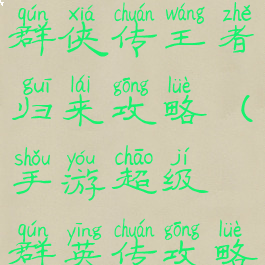 qún xiá chuán wáng zhě
群侠传王者
guī lái gōng lüè
归来攻略(
shǒu yóu chāo jí
手游超级
qún yīng chuán gōng lüè
群英传攻略